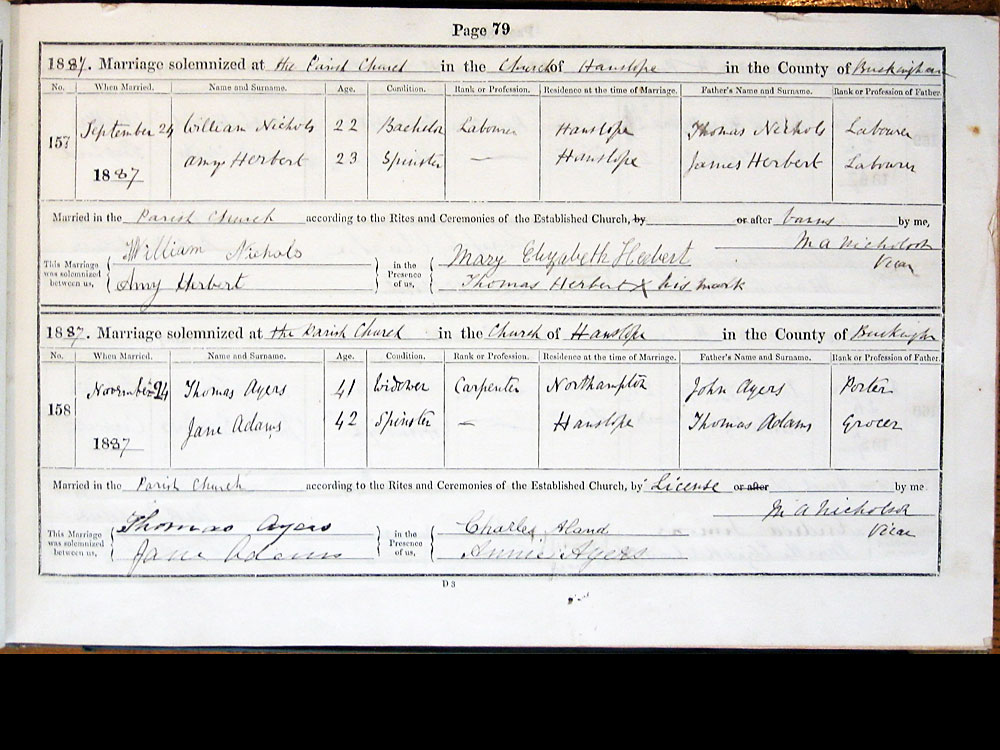 Page 79
1887. Marriage solemnized at the Parish Church in the Church of Hanslope in the County of Buckingham
No. When Married. Name and Surname. Age. Condition. Rank or Profession. Residence at the time of Marriage. Father's Name and Surname. Rank or Profession of Father.
157 September 24 William Nichols 22 Bachelor Labourer Hanslope Thomas Nichols Labourer
1887 Amy Herbert 23 Spinster — Hanslope James Herbert Labourer
Married in the Parish Church according to the Rites and Ceremonies of the Established Church, by or after banns by me,
M A Nicholson
Vicar
This Marriage was solemnized between us, William Nichols in the Presence of us, Mary Elizabeth Herbert
Amy Herbert Thomas Herbert X his mark
1887. Marriage solemnized at the Parish Church in the Church of Hanslope in the County of Buckingham
No. When Married. Name and Surname. Age. Condition. Rank or Profession. Residence at the time of Marriage. Father's Name and Surname. Rank or Profession of Father.
158 November 24 Thomas Ayers 41 Widower Carpenter Northampton John Ayers Porter
1887 Jane Adams 42 Spinster — Hanslope Thomas Adams Grocer
Married in the Parish Church according to the Rites and Ceremonies of the Established Church, by License or after by me
M A Nicholson
Vicar
This Marriage was solemnized between us, Thomas Ayers in the Presence of us, Charles Aland
Jane Adams Annie Ayers
D 3